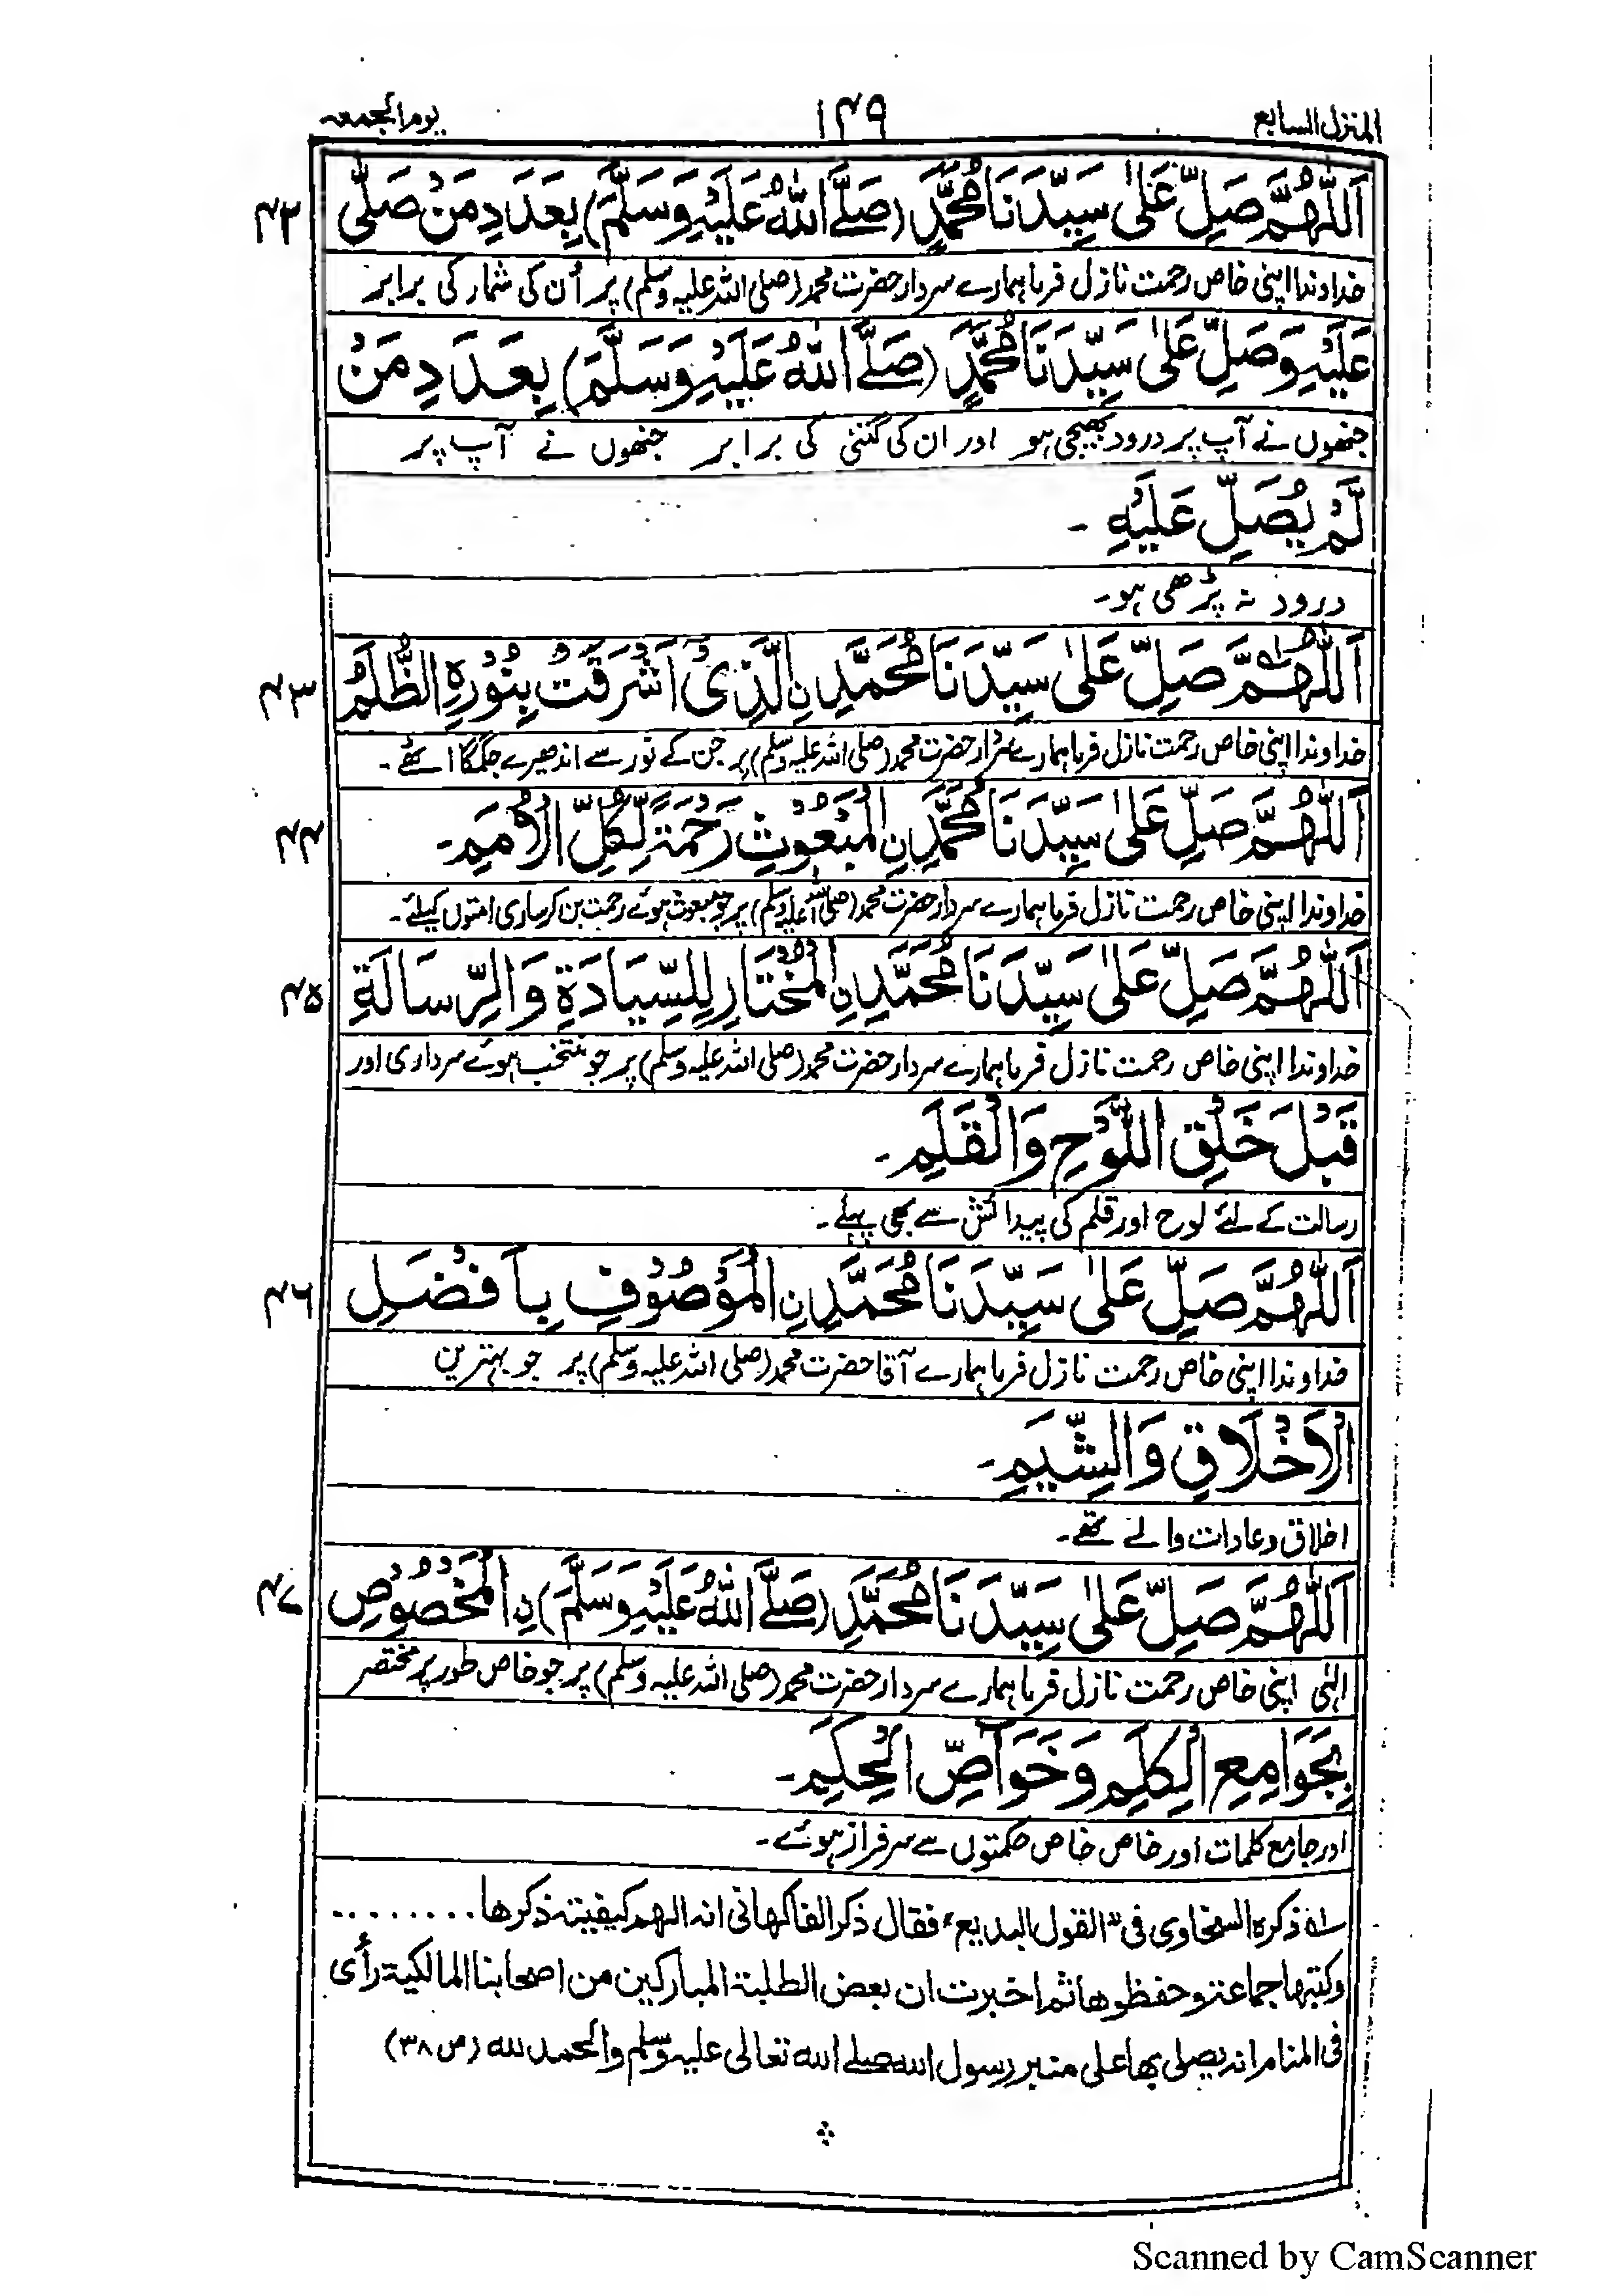 المنزل السابع ۱۴۹ يوم الجمعه
اَللّٰهُمَّ صَلِّ عَلٰى سَيِّدِنَا مُحَمَّدٍ (صَلَّے اللّٰهُ عَلَيْهِ وَسَلَّمَ) بِعَدَدِ مَنْ صَلّٰى ۴۲
خداوندا اپنی خاص رحمت نازل فرما ہمارے سردار حضرت محمد (صلی اللہ علیہ وسلم) پر اُن کی شمار کی برابر
عَلَيْهِ وَصَلِّ عَلٰى سَيِّدِنَا مُحَمَّدٍ (صَلَّے اللّٰهُ عَلَيْهِ وَسَلَّمَ) بِعَدَدِ مَنْ
جنھوں نے آپ پر درود بھیجی ہو اور ان کی گنتی کی برابر جنھوں نے آپ پر
لَّمْ يُصَلِّ عَلَيْهِ ۔
درود نہ پڑھی ہو۔
اَللّٰهُمَّ صَلِّ عَلٰى سَيِّدِنَا مُحَمَّدِنِ الَّذِىْ اَشْرَقَتْ بِنُوْرِهِ الظُّلَمُ ۴۳
خداوندا اپنی خاص رحمت نازل فرما ہمارے سردار حضرت محمد (صلی اللہ علیہ وسلم) پر جن کے نور سے اندھیرے جگمگا اٹھے۔
اَللّٰهُمَّ صَلِّ عَلٰى سَيِّدِنَا مُحَمَّدِنِ الْمَبْعُوْثِ رَحْمَةً لِّكُلِّ الْاُمَمِ۔ ۴۴
خداوندا اپنی خاص رحمت نازل فرما ہمارے سردار حضرت محمد (صلی اللہ علیہ وسلم) پر جو مبعوث ہوئے رحمت بن کر ساری امتوں کیلئے۔
اَللّٰهُمَّ صَلِّ عَلٰى سَيِّدِنَا مُحَمَّدِنِ الْمُخْتَارِ لِلسِّيَادَةِ وَالرِّسَالَةِ ۴۵
خداوندا اپنی خاص رحمت نازل فرما ہمارے سردار حضرت محمد (صلی اللہ علیہ وسلم) پر جو منتخب ہوئے سرداری اور
قَبْلَ خَلْقِ اللَّوْحِ وَالْقَلَمِ۔
رسالت کے لئے لوح اور قلم کی پیدائش سے بھی پہلے۔
اَللّٰهُمَّ صَلِّ عَلٰى سَيِّدِنَا مُحَمَّدِنِ الْمَوْصُوْفِ بِاَفْضَلِ ۴۶
خداوندا اپنی خاص رحمت نازل فرما ہمارے آقا حضرت محمد (صلی اللہ علیہ وسلم) پر جو بہترین
الْاَخْلَاقِ وَالشِّيَمِ۔
اخلاق و عادات والے تھے۔
اَللّٰهُمَّ صَلِّ عَلٰى سَيِّدِنَا مُحَمَّدِ (صَلَّے اللّٰهُ عَلَيْهِ وَسَلَّمَ) نِ الْمَخْصُوْصِ ۴۷
الٰہی اپنی خاص رحمت نازل فرما ہمارے سردار حضرت محمد (صلی اللہ علیہ وسلم) پر جو خاص طور پر مختصر
بِجَوَامِعِ الْكَلِمِ وَخَوَآصِّ الْحِكَمِ۔
اور جامع کلمات اور خاص خاص حکمتوں سے سرفراز ہوئے۔
ذكره السخاوى فى "القول البديع" فقال ذكر الفاكهانى انه الهم كيفية ذكرها.........
وكتبها جماعة وحفظوها ثم اخبرت ان بعض الطلبة المباركين من اصحابنا المالكية رأى
فى المنام انه يصلى بها على منبر رسول الله صلے الله تعالى عليه وسلم والحمد لله (ص ۳۸)
Scanned by CamScanner